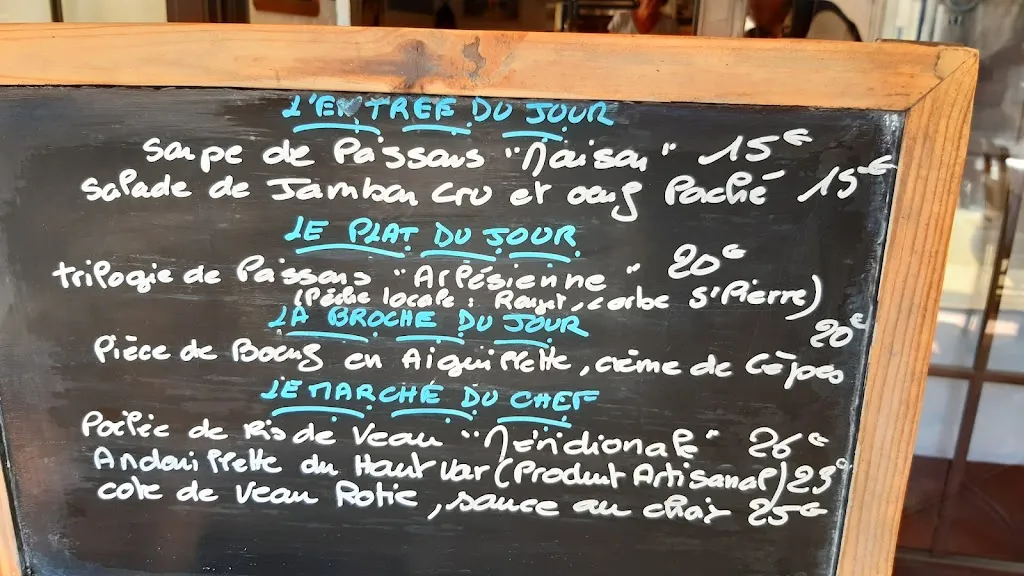 L'ENTREE DU JOUR
Soupe de Poissons "Maison" 15€
Salade de Jambon Cru et oeuf Poché 15€
LE PLAT DU JOUR
trilogie de Poissons "Arlésienne" 20€
(Pêche locale : Rouget, corbe S'Pierre)
LA BROCHE DU JOUR
Pièce de Boeuf en Aiguillette, crème de Cèpes 20€
LE MARCHÉ DU CHEF
Poêlée de Ris de Veau "Méridionale" 26€
Andouillette du Haut Var (Produit Artisanal) 23€
Cote de Veau Rotie, sauce au choix 25€